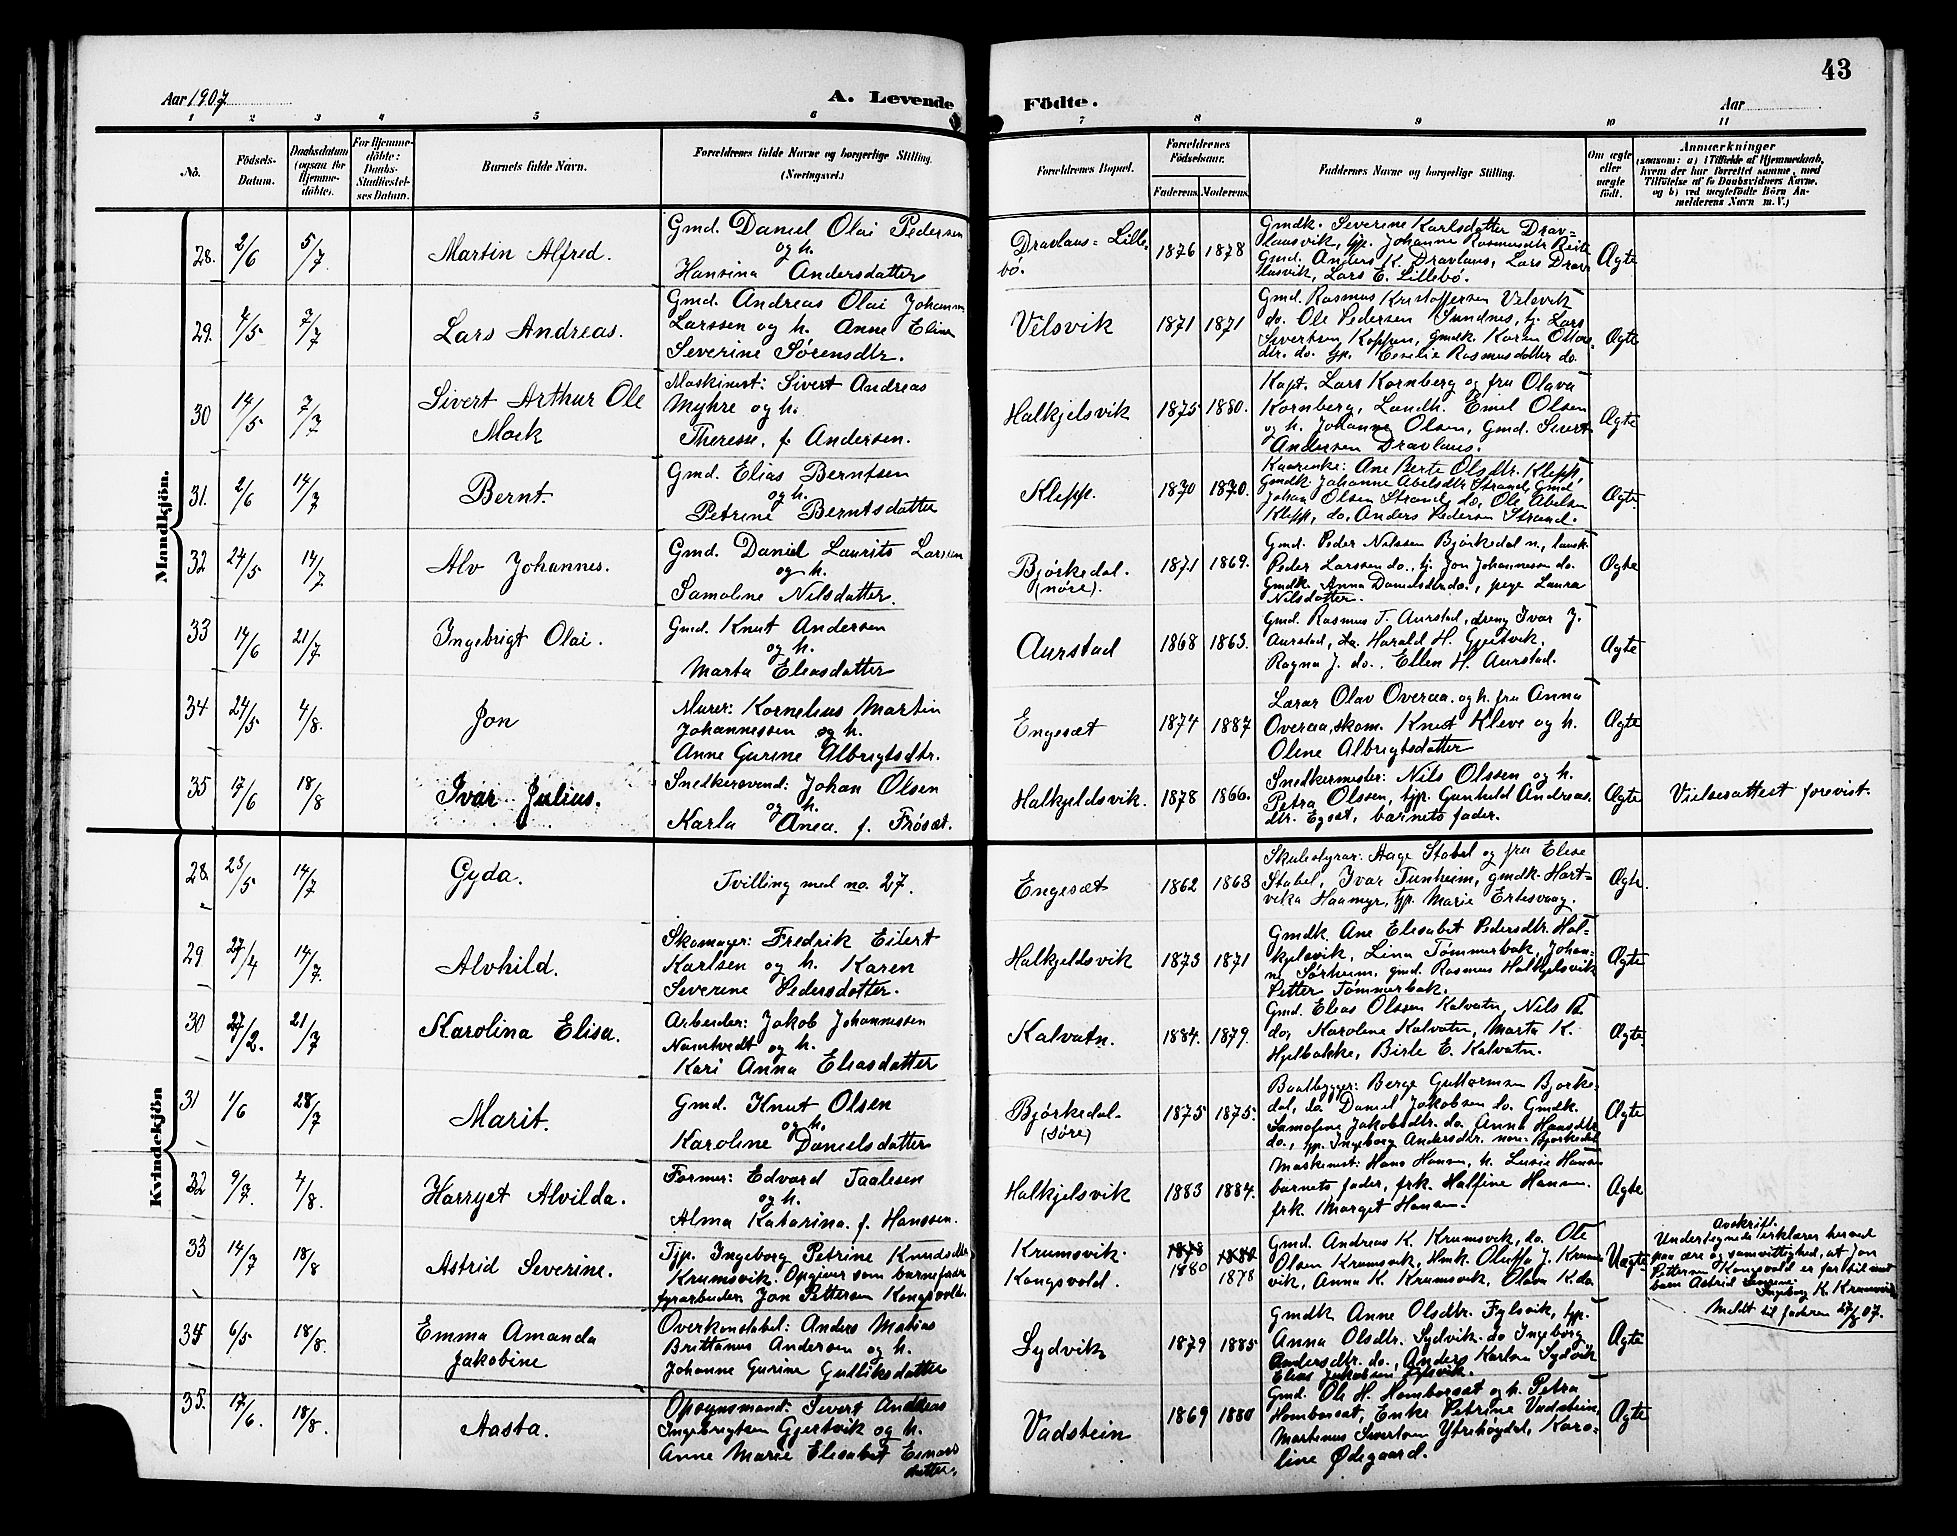 43
Aar 1907
A. Levende Födte.
Aar
1 2 3 4 5 6 7 8 9 10 11
No.
Födsels-Datum.
Daabsdatum (ogsaa for Hjemme-döbte).
For Hjemme-döbte: Daabs-Stadfæstel-ses Datum.
Barnets fulde Navn.
Forældrenes fulde Navne og borgerlige Stilling. (Næringsvei.)
Forældrenes Bopæl.
Forældrenes Födselsaar.
Faderens. Moderens.
Faddernes Navne og borgerlige Stilling.
Om ægte eller uægte födt.
Anmærkninger
(saasom: a) i Tilfælde af Hjemmedaab,
hvem der har forrettet samme, med
Tilföielse af to Daabsvidners Navne,
og b) ved uægtefödte Börn An-
melderens Navn m. V.)
Mandkjön.
28. 2/6 5/7. Martin Alfred.
Gmd. Daniel Olai Pedersen
og h.
Hansina Andersdatter
Dravlaus=Lille-
bö. 1876 1878
Gmdk. Severine Karlsdatter Drav=
lausvik, tjp. Johanne Rasmusdtr Reite
Gmd. Anders K. Dravlaus, Lars Drav
lausvik, Lars E. Lillebö.
Ægte
29. 4/5 7/7 Lars Andreas.
Gmd. Andreas Olai Johann
Larssen og h. Anne Eline
Severine Sörensdtr.
Velsvik 1871 1871
Gmd. Rasmus Kristoffersen Velsvik
do. Ole Pedersen Sundnes, tj. Lars
Sivertsen Koppen, gmdk. Karen
dtr. do. tjp. Cecilie Rasmusdatter do.
Ægte
30 14/5 7/7 Sivert Arthur Ole
Mork
Maskinist: Sivert Andreas
Myhre og h.
Therese, f. Andersen.
Halkjelsvik 1875 1880.
Kapt. Lars Kornberg og fru Olava
Kornberg, Landh. Emil Olsen
og h. Johanne Olsen, Gmd. Sivert
Andersen Dravlaus.
Ægte
31. 2/6 14/7 Bernt.
Gmd. Elias Berntsen
og h.
Petrine Berntsdatter
Klepp. 1870 1870.
Kaarenke: Ane Berte Olsdtr. Klepp,
Gmdk. Johanne Abelsdtr Strand, Gmd.
Johan Olsen Strand, do. Ole Abelsen
Klepp, do. Anders Pedersen Strand.
Ægte
32 24/5 14/7 Alv Johannes.
Gmd. Daniel Laurits Larssen
og h.
Samoline Nilsdatter.
Björkedal.
(nöre). 1871 1869.
Gmd. Peder Nilssen Björkedal n.,
Peder Larssen do., tj. Jon Johannessen do.
Gmdk. Anna Danielsdtr. do., pige Laura
Nilsdatter.
Ægte
33 14/6 21/7 Ingebrigt Olai.
Gmd. Knut Andersen
og h.
Marta Eliasdatter
Aurstad 1868 1863.
Gmd. Rasmus T. Aurstad, dreng Ivar J.
Aurstad, do. Harald H. Gjertvik,
Ragna J. do., Ellen H. Aurstad.
Ægte
34 24/5 4/8. Jon
Murer: Kornelius Martin
Johannessen og h.
Anne Gurine Albregtsdtr.
Engeset 1874 1887
Lærar Olav Overaa og h. fru Anna
Overaa, skom. Knut Kleve og h.
Oline Albregtsdatter
Ægte
35 17/6 18/8 Ivar Julius.
Snedkersvend: Johan Olsen
og h.
Karla Anea f. Frösæt.
Halkjeldsvik. 1878 1866.
Snedkermester: Nils Olssen og h.
Petra Olssen, tjp. Gunhild Andreas-
dtr. Egset, barnets fader.
Ægte Vielsesattest forevist.
Kvindekjön
28. 23/5 14/7 Gyda.
Tvilling med no. 27.
Engesæt 1862 1863
Skulestyrar: Aage Stabel og fru Elise
Stabel, Ivar Tunheim, gmdk. Hart-
vika Haamyr, tjp. Marie Ertesvaag.
Ægte.
29 27/4 14/7. Alvhild.
Skomager: Fredrik Eilert
Karlsen og h. Karen
Severine Pedersdatter.
Halkjeldsvik 1873 1871
Gmdk. Ane Elisabet Pedersdtr. Hal-
kjelsvik, Lina Tömmerbak, Johan-
ne Sörheim, gmd. Rasmus Halkjelsvik
Petter Tömmerbak.
Ægte
30 27/2. 21/7 Karolina Elisa.
Arbeider: Jakob Johannessen
Namtvedt og h.
Kari Anna Eliasdatter
Kalvatn. 1884. 1879.
Gmd. Elias Olssen Kalvatn, Nils P.
do, Karoline Kalvatn, Marta K.
Hjelbakke, Birte E. Kalvatn.
Ægte
31 1/6 28/7 Marit.
Gmd. Knut Olsen
og h.
Karoline Danielsdatter
Björkedal.
(söre) 1875 1875.
Baatbygger: Berge Guttormsen Björke-
dal, do. Daniel Jakobsen do. Gmdk.
Samoline Jakobsdtr. do. Anna Hansdtr
do., tjp. Ingeborg Andersdtr. nore Bjorkedal
Ægte
32 9/7. 4/8. Harryet Alvilda.
Former: Edvard Taalesen
og h.
Alma Katarina f. Hanssen.
Halkjelsvik 1883 1884.
Maskinist: Hans Hansen, h. Lusie Hansen
barnets fader, frk. Halfine Hansen.
frk. Margit Hansen.
Ægte
33 14/7 18/8 Astrid Severine.
Tjp. Ingeborg Petrine Knudsdtr
Krumsvik. Opgiver som barnefader
fyrarbeider Jon Pettersen Kongsvold.
Krumsvik.
Kongsvold. 1878 1880
1880 1878
Gmd. Andreas K. Krumsvik, do. Ole
Olsen Krumsvik, Hmk. Oluffa J. Krums
vik, Anna K. Krumsvik, Olava K. do.
Uægte
Avskrift.
Undertegnede erklærer herved
paa ære og samvittighed, at Jon
Pettersen Kongsvold er far til mit
barn Astrid Severine.
Ingeborg K. Krumsvik
Meldt til faderen 27/8 07.
34 6/5 18/8. Emma Amanda
Jakobine
Overkonstabel: Anders Matias
Brittanus Andersen og h.
Johanne Gurine Gulliksdatter
Lydvik 1879 1885
Gmdk Anne Olsdtr. Fylsvik, tjp.
Anna Olsdtr. Sydvik. do Ingeborg
Andersdtr. do., Anders Karlsen Sydvik
Elias Jakobsen Fylsvik.
Ægte
35. 17/6. 18/8. Aasta.
Opsynsmand: Sivert Andreas
Ingebrigtsen Gjertvik og h.
Anne Marie Elisabet Einars
datter.
Vadstein 1869 1880
Gmd. Ole H. Homborset og h. Petra
Homborset, Enke Petrine Vadstein,
Martinus Sivertsen Ytrehöydal, Karo-
line Ødegaard.
Ægte